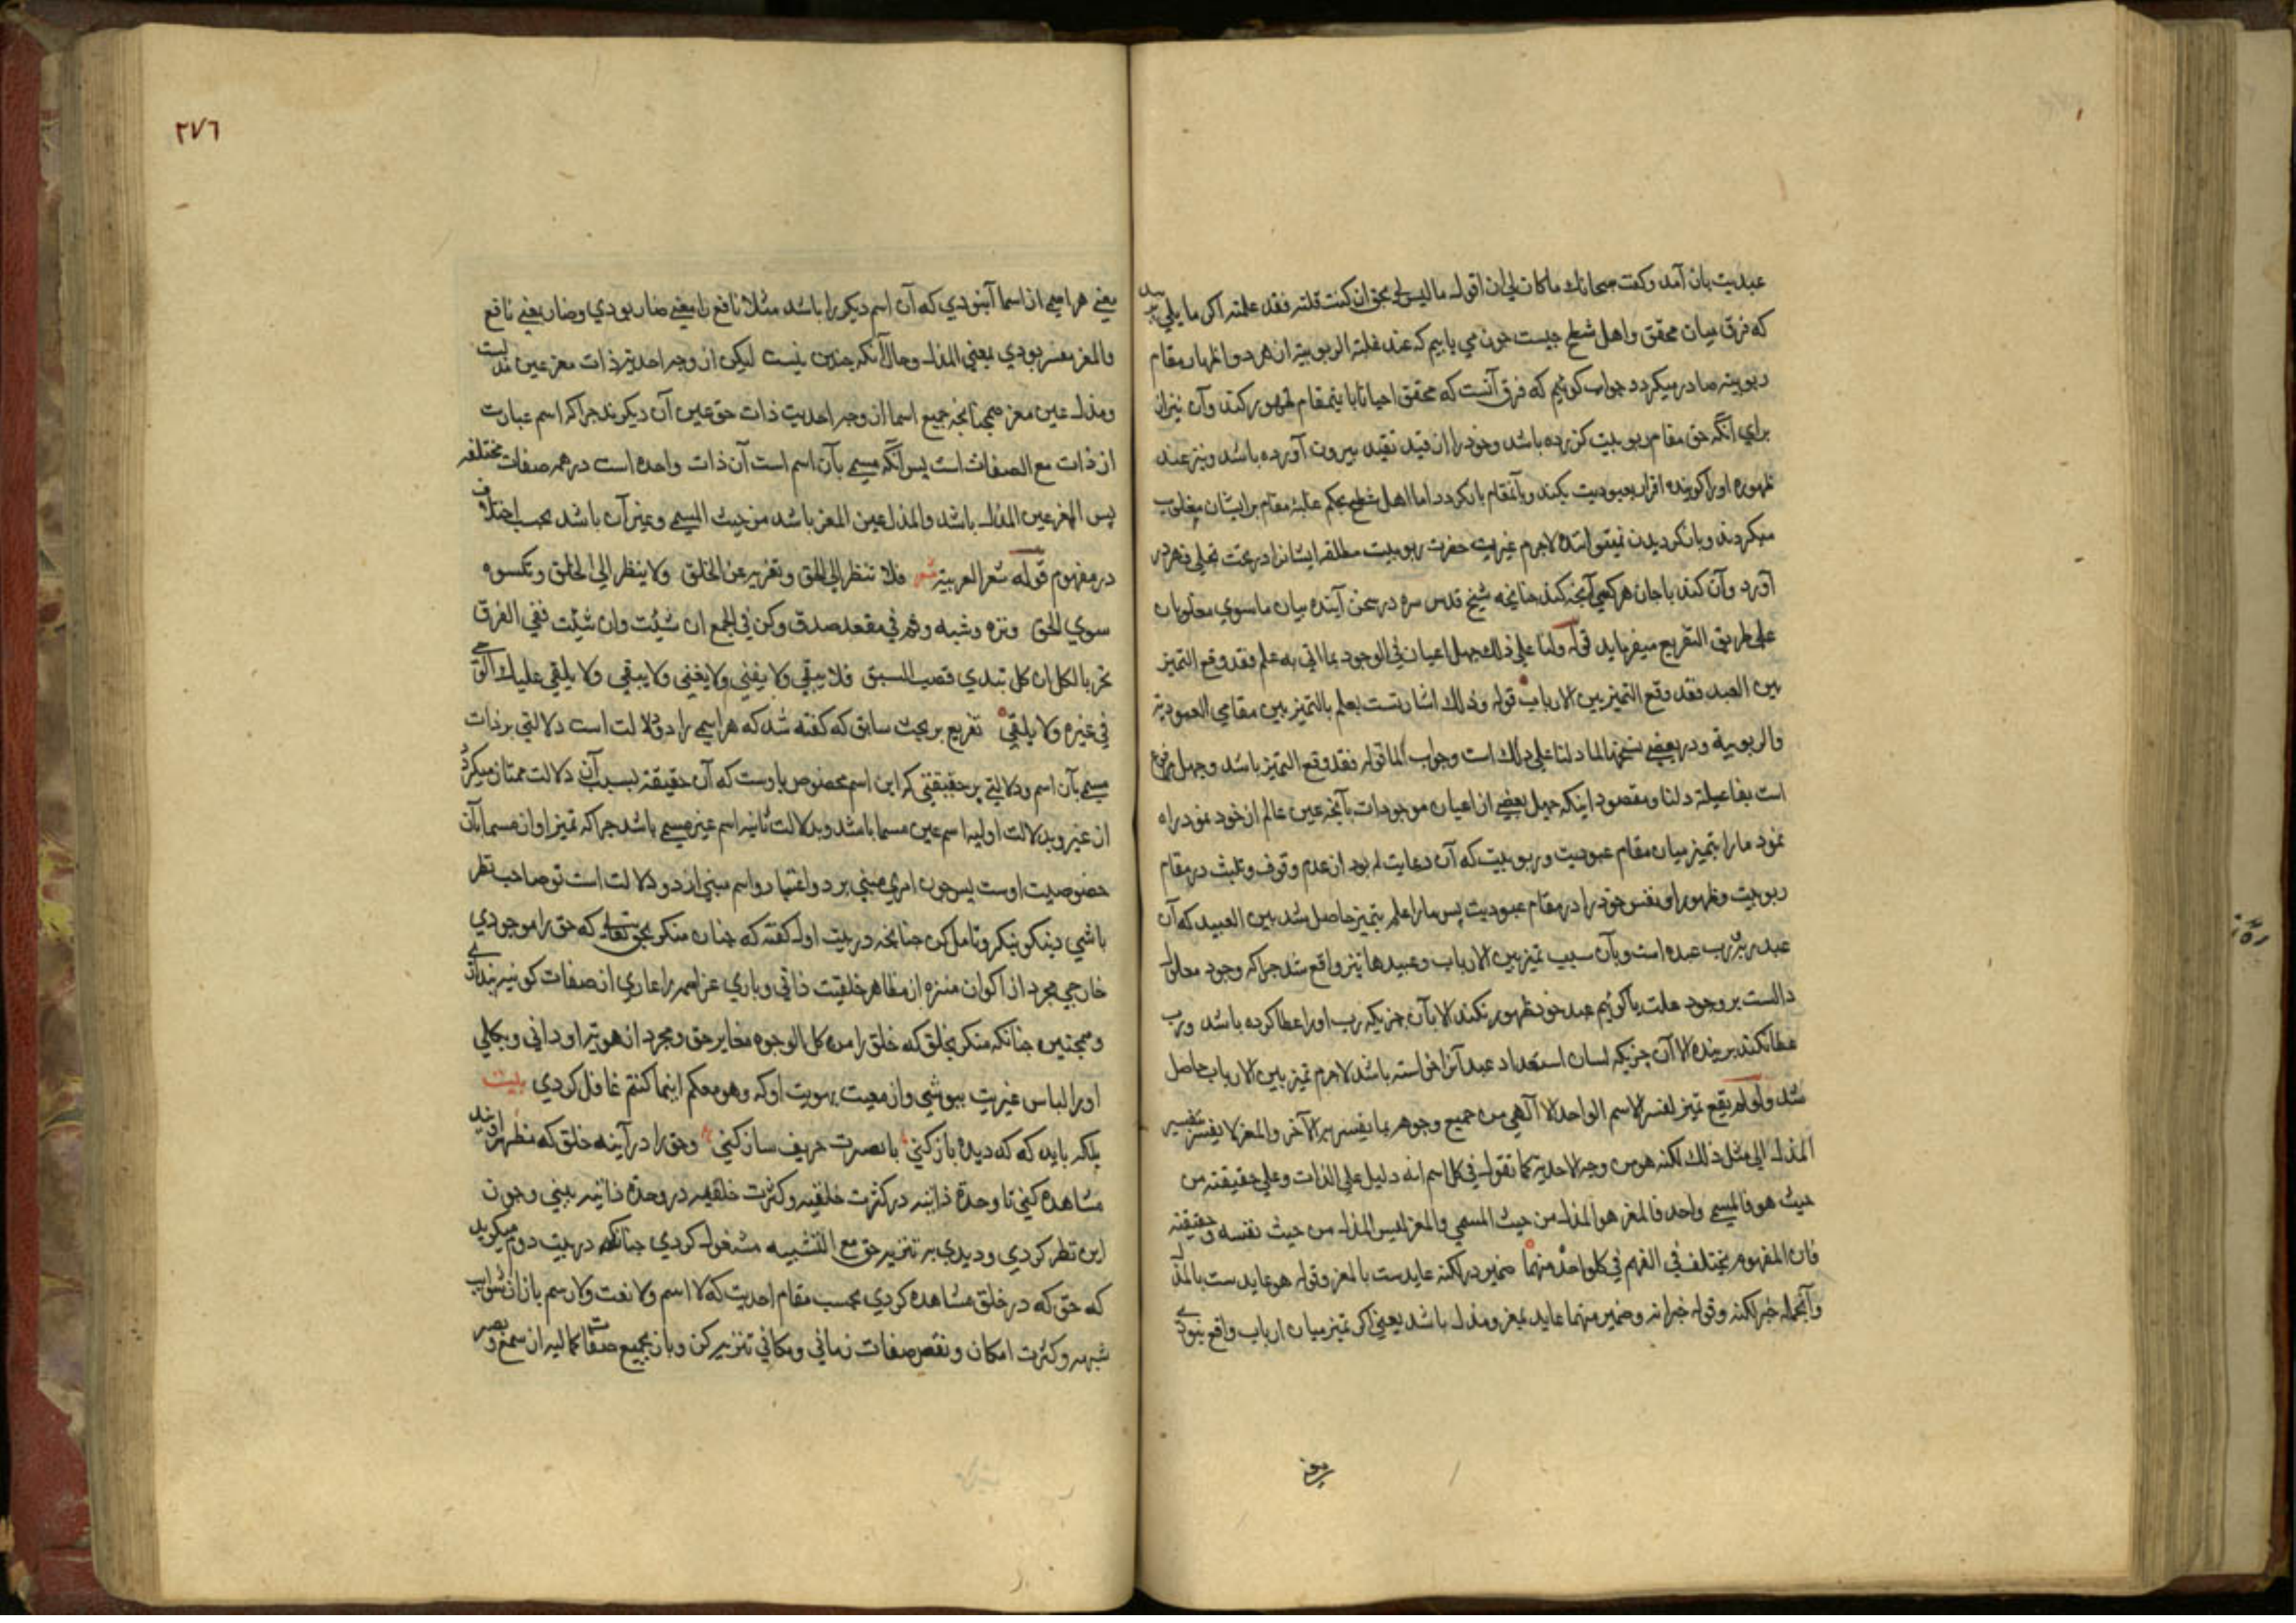 عبدیت بان آمد وکفت سبحانك ماکان لی ان اقول ما لیس لی بحق ان کنت قلته فقد علمته اکر سایلی
که فرق میان محقق واهل شطح چیست چون می یابیم که عند غلبة الربوبیة ان هر دو اظهار مقام
ربوبیته صادر میکردد جواب کوئیم که فرق آنست که محقق احیانا باینمقام ظهور کند وآن نیز از
برای آنکه حق مقام ربوبیت کزرده باشد وخود را از قید تقید بیرون آورده باشد ونیز عند
ظهوره او را کوینده اقرار بعبودیت بکند وبآنمقام باز کردد اما اهل شطح بحکم غلبهٔ مقام بر ایشان مغلوب
میکردند وباز کردیدن نمیتوانند لاجرم غیرت حضرت ربوبیت مطلقه ایشانرا در تحت تجلی قهر در
آورد وآن کند باجان هرکسی آنچه کند چنانچه شیخ قدس سره در سخن آینده بیان ماسوی مغلوبان
علی طریق التفریع میفرماید قوله ولنا علی ذلك جهل اعیان فی الوجود بما اتی به علم فقد وقع التمیز
بین العبید فقد وقع التمیز بین الارباب قوله وذلك اشارتست بعلم بالتمیز بین مقامی العبودیة
والربوبیة ودر بعضی نسخها لما دلنا علی ذلك است وجواب لما قوله فقد وقع التمیز باشد وجهل مرفوع
است بفاعیلة دلنا ومقصود اینکه جهل بعضی از اعیان موجودات بآنچه عین عالم از خود نمود راه
نمود ما را بتمیز میان مقام عبودیت وربوبیت که آن دعایت له بود از عدم وقوف وتلبث در مقام
ربوبیت وظهور او نفس خود را در مقام عبودیت پس ما را علم بتمیز حاصل شد بین العبید که آن
عبد ربّ ربّ عبده است وبآن سبب تمیز بین الارباب وعبیدها نیز واقع شد چراکه وجود معلول
دالست بر وجود علت یا کوئیم عبد خود ظهور نکند الا بآن چیزیکه رب او را عطا کرده باشد ورب
عطا نکند بر بنده الا آن چیزیکه لسان استعداد عبد آنرا خواسته باشد لاجرم تمیز بین الارباب حاصل
شد ولو لم یقع تمیز لفسر الاسم الواحد الالٰهی من جمیع وجوهه بما یفسر به الآخر والمعز لا یفسر بتفسیر
المذل الی مثل ذلك لکنه هو من وجه الاحدیة کما تقول فی کل اسم انه دلیل علی الذات وعلی حقیقته من
حیث هو فالمسمی واحد فالمعز هو المذل من حیث المسمی والمعز لیس المذل من حیث نفسه وحقیقته
فان المفهوم یختلف فی الفهم فی کل واحد منهما ضمیر در لکنه عایدست بالمعز وقوله هو عایدست بالمذل
وآنجمله خبر لکنه وقوله خبر انه وضمیر منهما عاید بمعز ومذل باشد یعنی اکر تمیز میان ارباب واقع نبودی
٢٧٦
یعنی هر اسمی از اسما آنبودی که آن اسم دیکر را باشد مثلا نافع را معنی ضار بودی وضار بمعنی نافع
والمعز مفسر بودی بمعنی المذل وحال آنکه چنین نیست لیکن از وجه احدیة ذات معز عین مذلست
ومذل عین معز همچنانچه جمیع اسما از وجه احدیت ذات حق عین آن دیکرند چراکه اسم عبارت
از ذات مع الصفات است پس آنکه مسمی بآن اسم است آن ذات واحده است در همه صفات مختلفه
پس المعز عین المذل باشد والمذل عین المعز باشد من حیث المسمی وغیر آن باشد بحسب اختلاف
در مفهوم قوله شعر العربیة شعر فلا تنظر الی الحق وتعزیه عن الخلق ولا ینظر الی الخلق وتکسوه
سوی الحق ونزه وشبه وقم فی مقعد صدق وکن فی الجمع ان شئت وان شئت ففی الفرق
تحز بالکل ان کل تبدی قصب السبق فلا یبقی ولا یفنی ولا یفنی ولا یبقی ولا یلقی علیك الوحی
فی غیره ولا یلقی تفریع بر بحث سابق که کفته شد که هر اسمی را دو دلالت است دلالتی بر ذات
مسمی بآن اسم ودلالتی بر حقیقتی که این اسم مخصوص باوست که آن حقیقة بسبب آن دلالت ممتاز میکردد
از غیر وبدلالت اولیه اسم عین مسما باشد وبدلالت ثانیه اسم غیر مسمی باشد چراکه تمیز او از مسما بآن
خصوصیت اوست پس چون امری مبنی بر دو اعتبار واسم مبنی از دو دلالت است تو صاحب نظر
باشی نیکو بنکر وتامل کن چنانچه در بیت اول کفته که چنان منکر بحق تعالی که حق را موجودی
خارجی مجرد از اکوان منزه از مظاهر خلقیت ذاتی وباری عز اسمه را عاری از صفات کونیه ندانی
وهمچنین چنانکه منکر بخلق که خلق را من کل الوجوه مغایر حق ومجرد از هویة او دانی وبکلی
او را لباس غیریت بپوشی واز معیت بهویت او که وهو معکم اینما کنتم غافل کردی بیت
بلکه باید که که دیده باز کنی با بصرت حریف ساز کنی وحق را در آینه خلق که مظهر اویند
مشاهده کنی تا وحدة ذاتیه در کثرت خلقیه وکثرت خلقیه در وحدة ذاتیه ببینی وچون
این نظر کردی ودیدی بر تنزیه حق مع التشبیه مشغول کردی چنانکه در بیت دوم میکوید
که حق که در خلق مشاهده کردی بحسب مقام احدیت که لا اسم ولا نعت ولا رسم باز از شوایب
شبهه وکثرت امکان ونقص صفات زمانی ومکانی تنزیه کن وباز بجمیع صفات کمالیه از سمع وبصر